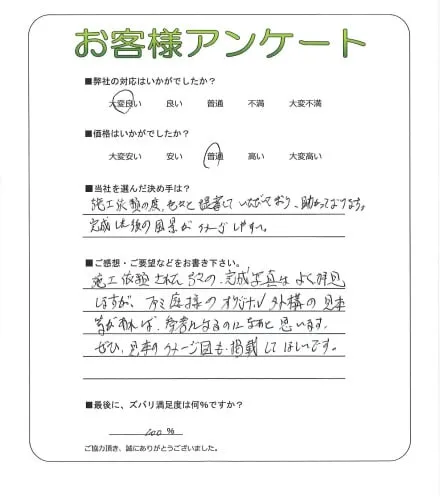 お客様アンケート
■弊社の対応はいかがでしたか？
大変良い 良い 普通 不満 大変不満
■価格はいかがでしたか？
大変安い 安い 普通 高い 大変高い
■当社を選んだ決め手は？
施工依頼の度、色々と提案していただいており、助かっております。
完成した後の風景がイメージしやすい。
■ご感想・ご要望などをお書き下さい。
施工依頼された の、完成写真はよく拝見
しますが、 庭様のオリジナル外構の見本
等があれば、参考になるのになあと思います。
ぜひ、見本のイメージ図も掲載してほしいです。
■最後に、ズバリ満足度は何%ですか？
100 %
ご協力頂き、誠にありがとうございました。